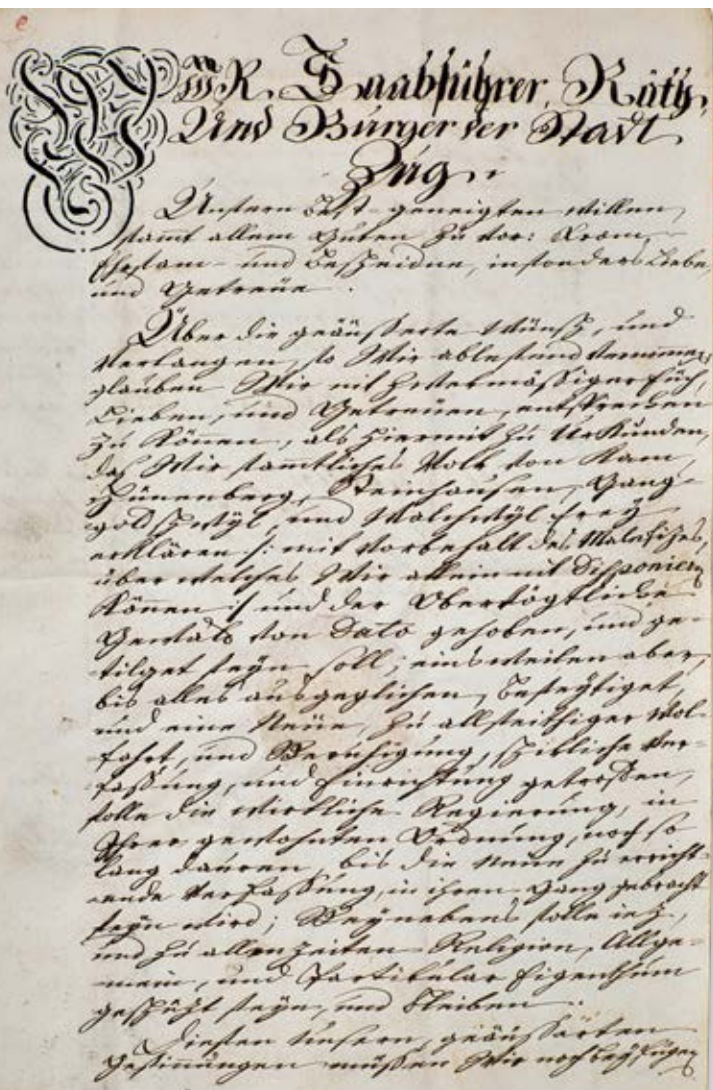 e
WIR. Staabführer, Räth,
Und Bürger der Stadt
Zug.
Unsern best-geneigten willen,
samt allem Guten zu vor: From,
Ehrsam- und bescheidne, insonders Liebe,
und Getreüe.
Über die geäusserte Wünsch, und
Verlangen, so Wir ablesend vernommen,
glauben Wir nit Euch,
Lieben, und Getreuen, entsprechen
zu können, als hiermit zu Urkunden,
daß Wir samtliches Volk von Kam,
Hünenberg, Steinhausen, Gang-
goldschwyl, und Walchwyl frey
erklären /: mit Vorbehalt des Malefizes,
über welches Wir allein nit Disponieren
können :/ und der Obervögtliche
Gewalt von Dato gehoben, und ge-
tilget seyn soll; einsweilen aber,
bis alles ausgeglichen, beseytiget,
und eine Neüe, zu allseithiger Wol-
fahrt, und Beruhigung, schikliche Ver-
fassung, und Einrichtung getroffen,
solle die wirkliche Regierung, in
Ihrer gewohnten Ordnung, noch so
lang dauren, bis die neue zu erricht-
ende Verfassung, in ihren Gang gebracht
seyn wird; Beynebens solle iez,
und zu allen Zeiten Religion, Allge-
mein, und Partikular Eigenthum
geschüzt seyn, und bleiben.
Diesen unsern, geäusserten
Gesinnungen müssen Wir noch beyfügen